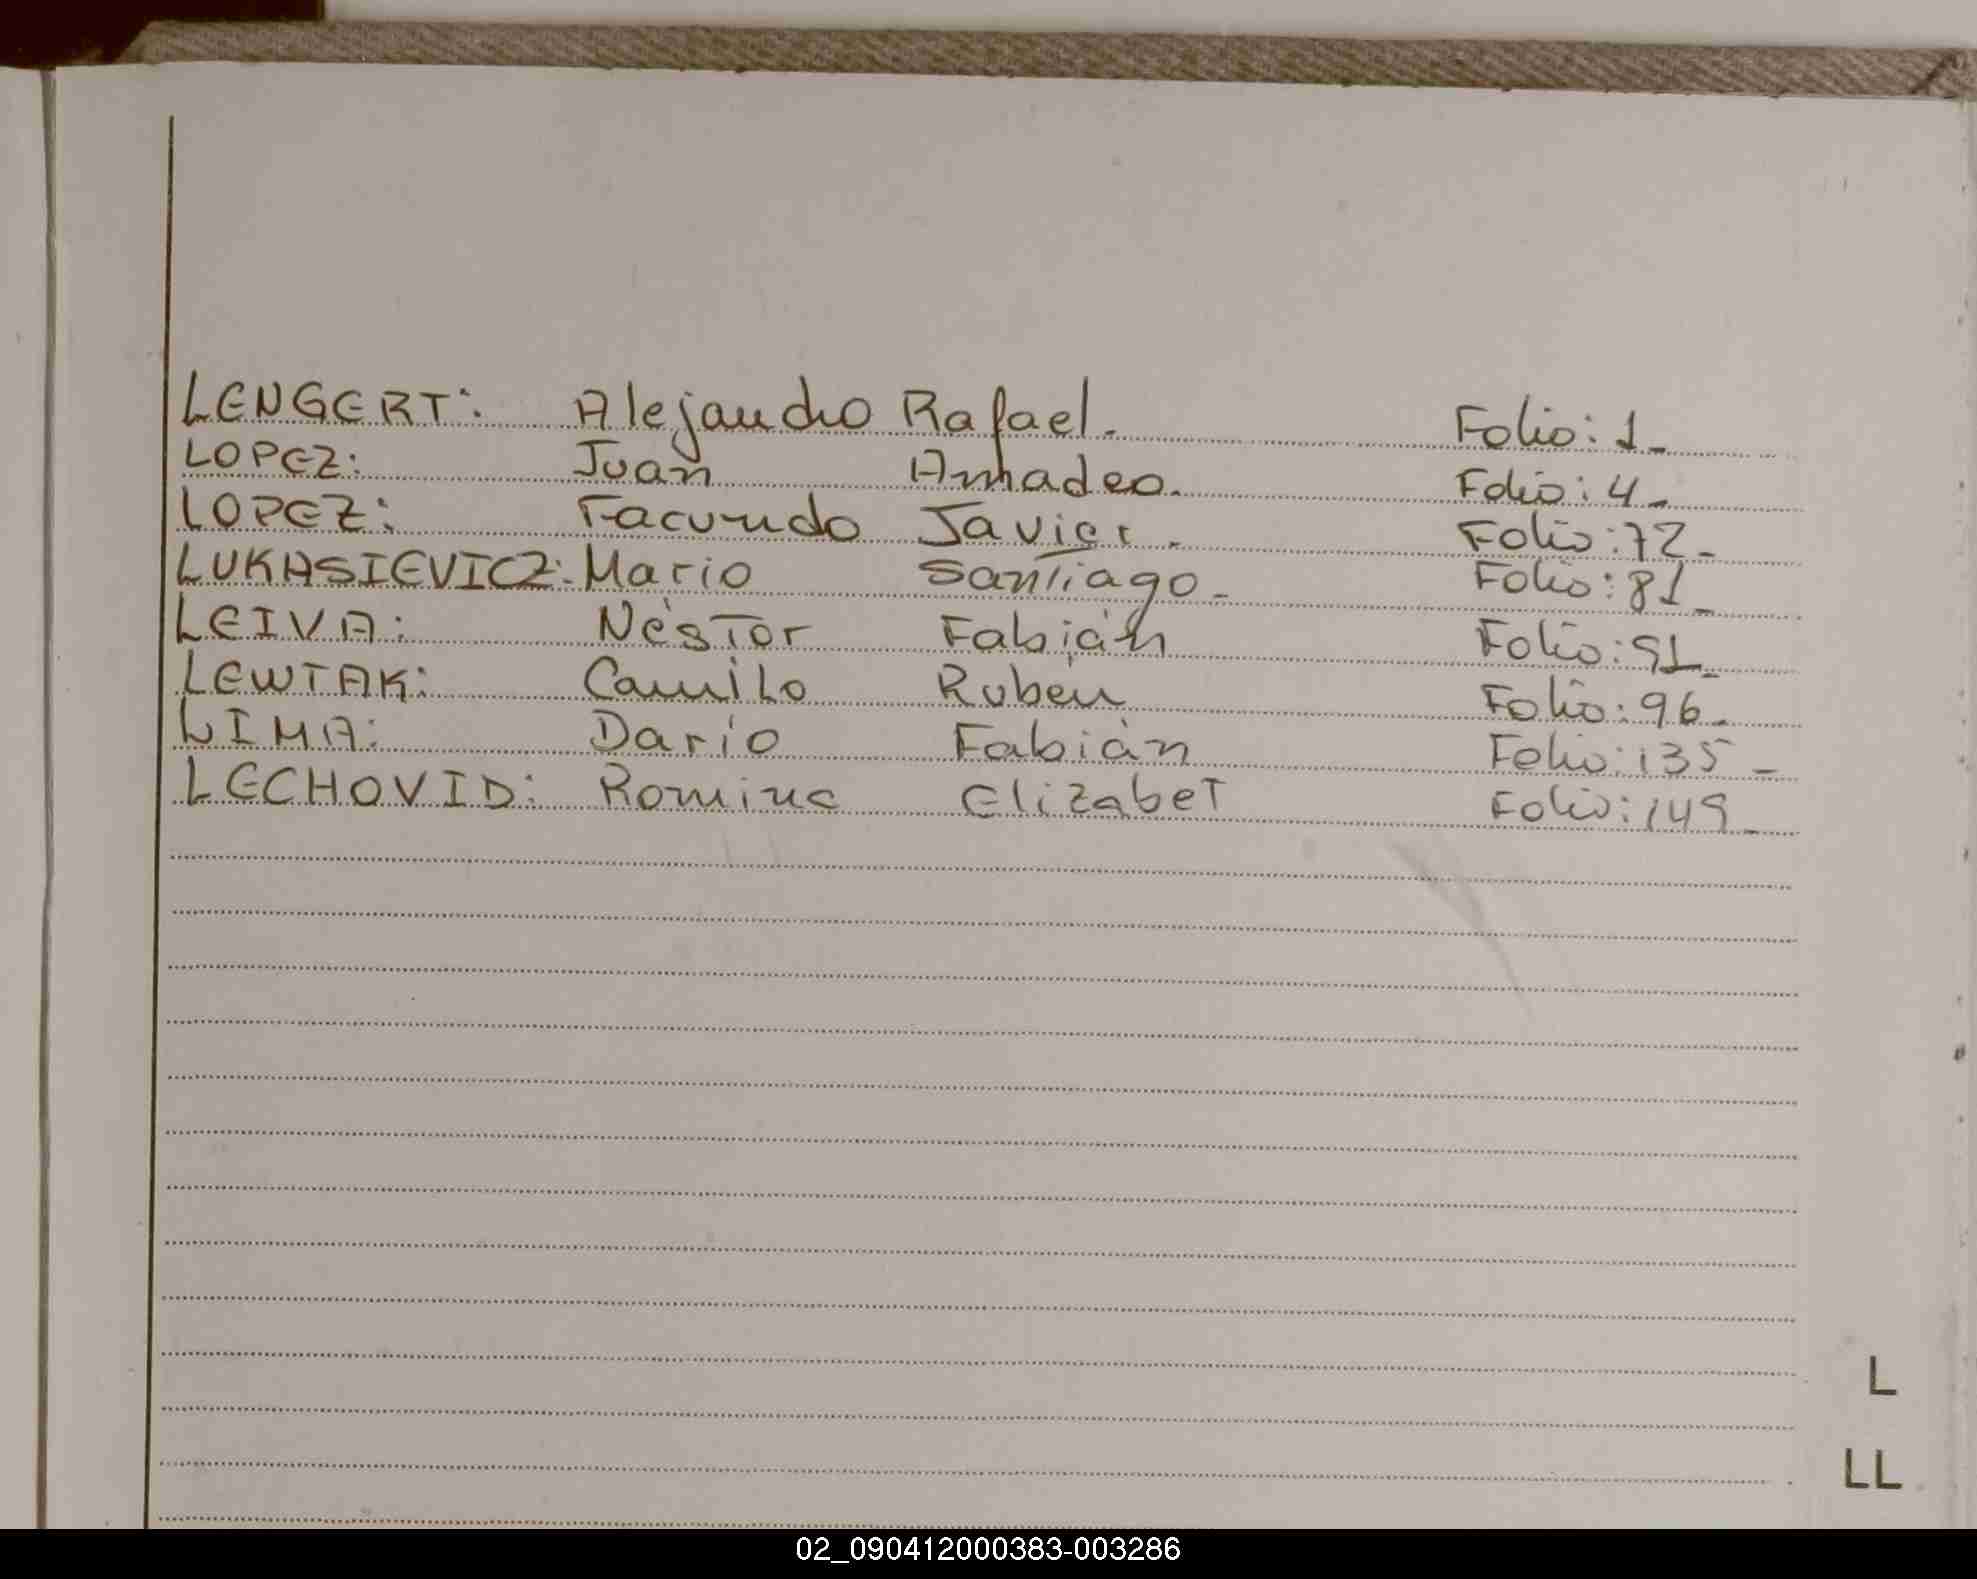 LENGERT: Alejandro Rafael. Folio: 1_
LOPEZ: Juan Amadeo. Folio: 4_
LOPEZ: Facundo Javier. Folio: 72_
LUKASIEVICZ: Mario Santiago_ Folio: 81_
LEIVA: Néstor Fabián Folio: 91_
LEWTAK: Camilo Ruben Folio: 96_
LIMA: Darío Fabián Folio: 135_
LECHOVID: Romina Elizabet Folio: 149_
L
LL
02_090412000383-003286